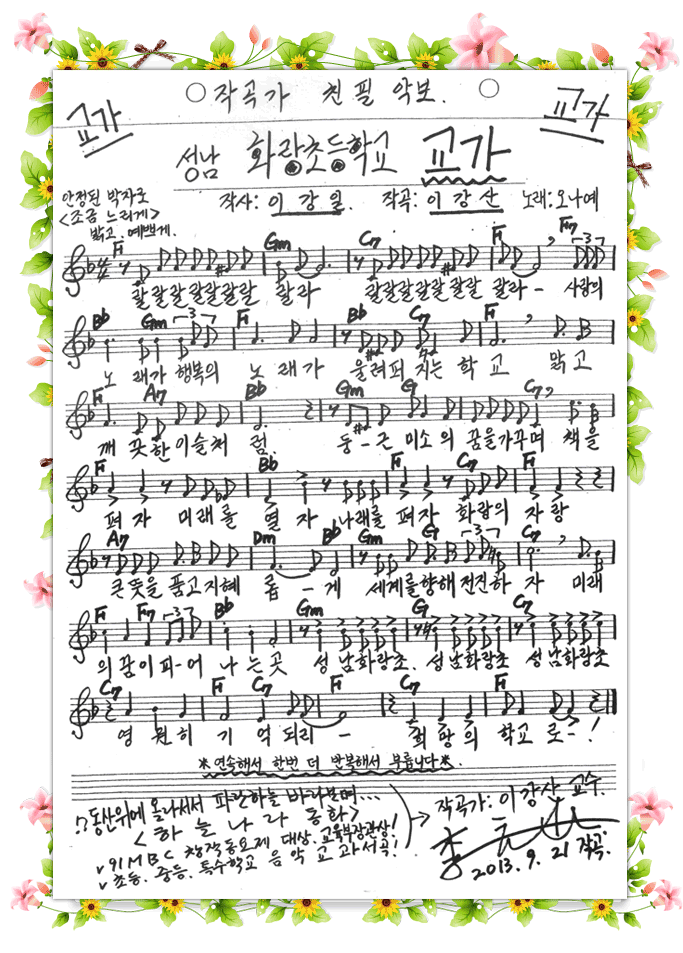 ○작곡가 친필 악보. ○
교가 교가
성남 화랑초등학교 교가
안정된 박자로
<조금 느리게>
밝고. 예쁘게.
작사: 이강일. 작곡: 이강산 노래: 오나예
F Gm C7 F F7
랄랄랄랄랄랄랄 랄라 랄랄랄랄랄랄랄 랄라- 사랑의
Bb Gm F Bb C7 F
노래가 행복의 노래가 울려퍼지는 학교 맑고
F A7 Bb Gm G C7
깨끗한 이슬처럼. 둥-근 미소의 꿈을가꾸며 책을
F Bb F C7 F
펴자 미래를 열자 나래를 펴자 화랑의 자랑
A7 Dm Bb Gm G C7
큰뜻을 품고지혜롭-게 세계를향해 전진하자 미래
F F7 Bb Gm G C7
의꿈이피-어 나는곳 성남화랑초. 성남화랑초 성남화랑초
C7 F C7 F C7 F
영원히 기억되리- 희망의 학교로-!
*연속해서 한번 더 반복해서 부릅니다*.
동산위에 올라서서 파란하늘 바라보며...
<하늘나라 동화>
✓91MBC 창작동요제 대상. 교육부장관상!
✓초등. 중등. 특수학교 음악 교과서곡!
→ 작곡가: 이강산 교수.
2013. 9. 21 작곡.